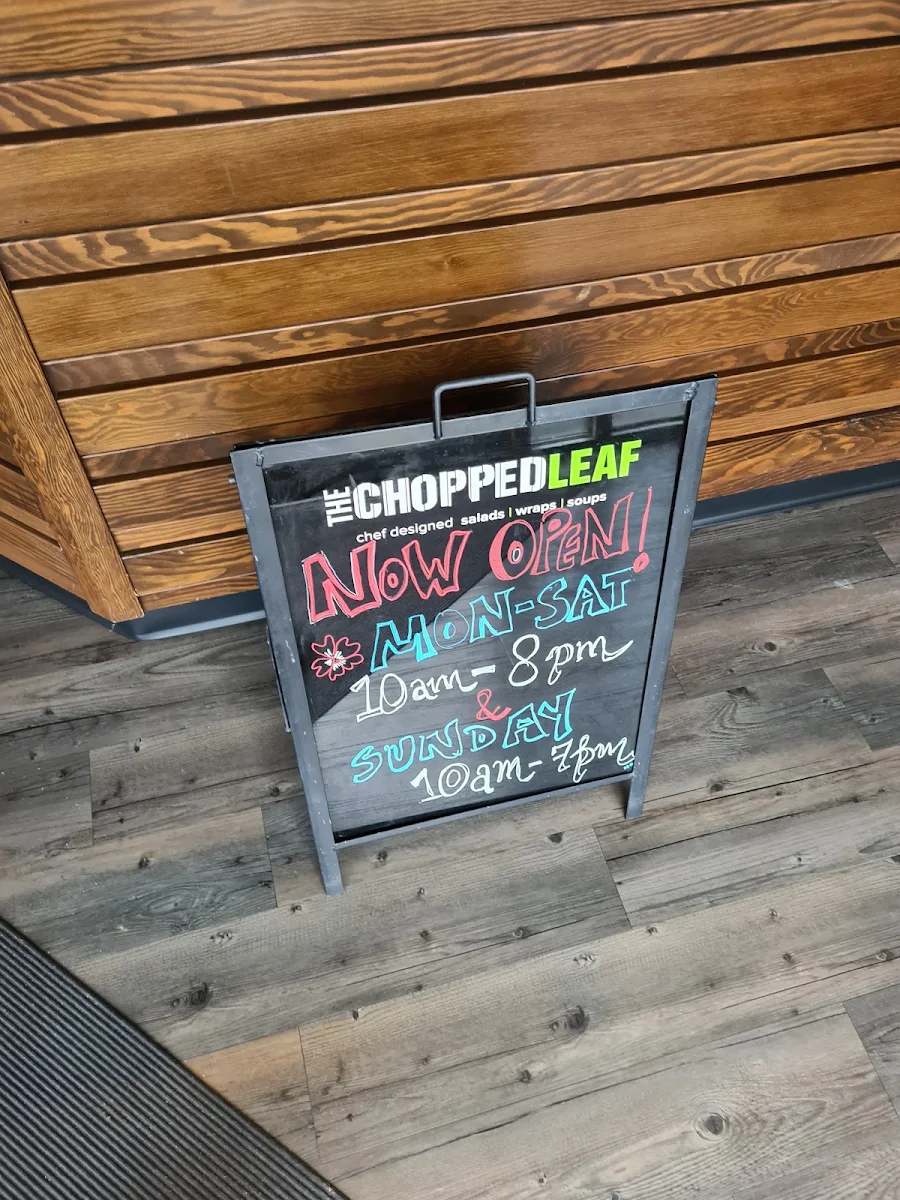 THE CHOPPEDLEAF
chef designed salads | wraps | soups
NOW OPEN!
MON-SAT
10am - 8pm
&
SUNDAY
10am - 7pm